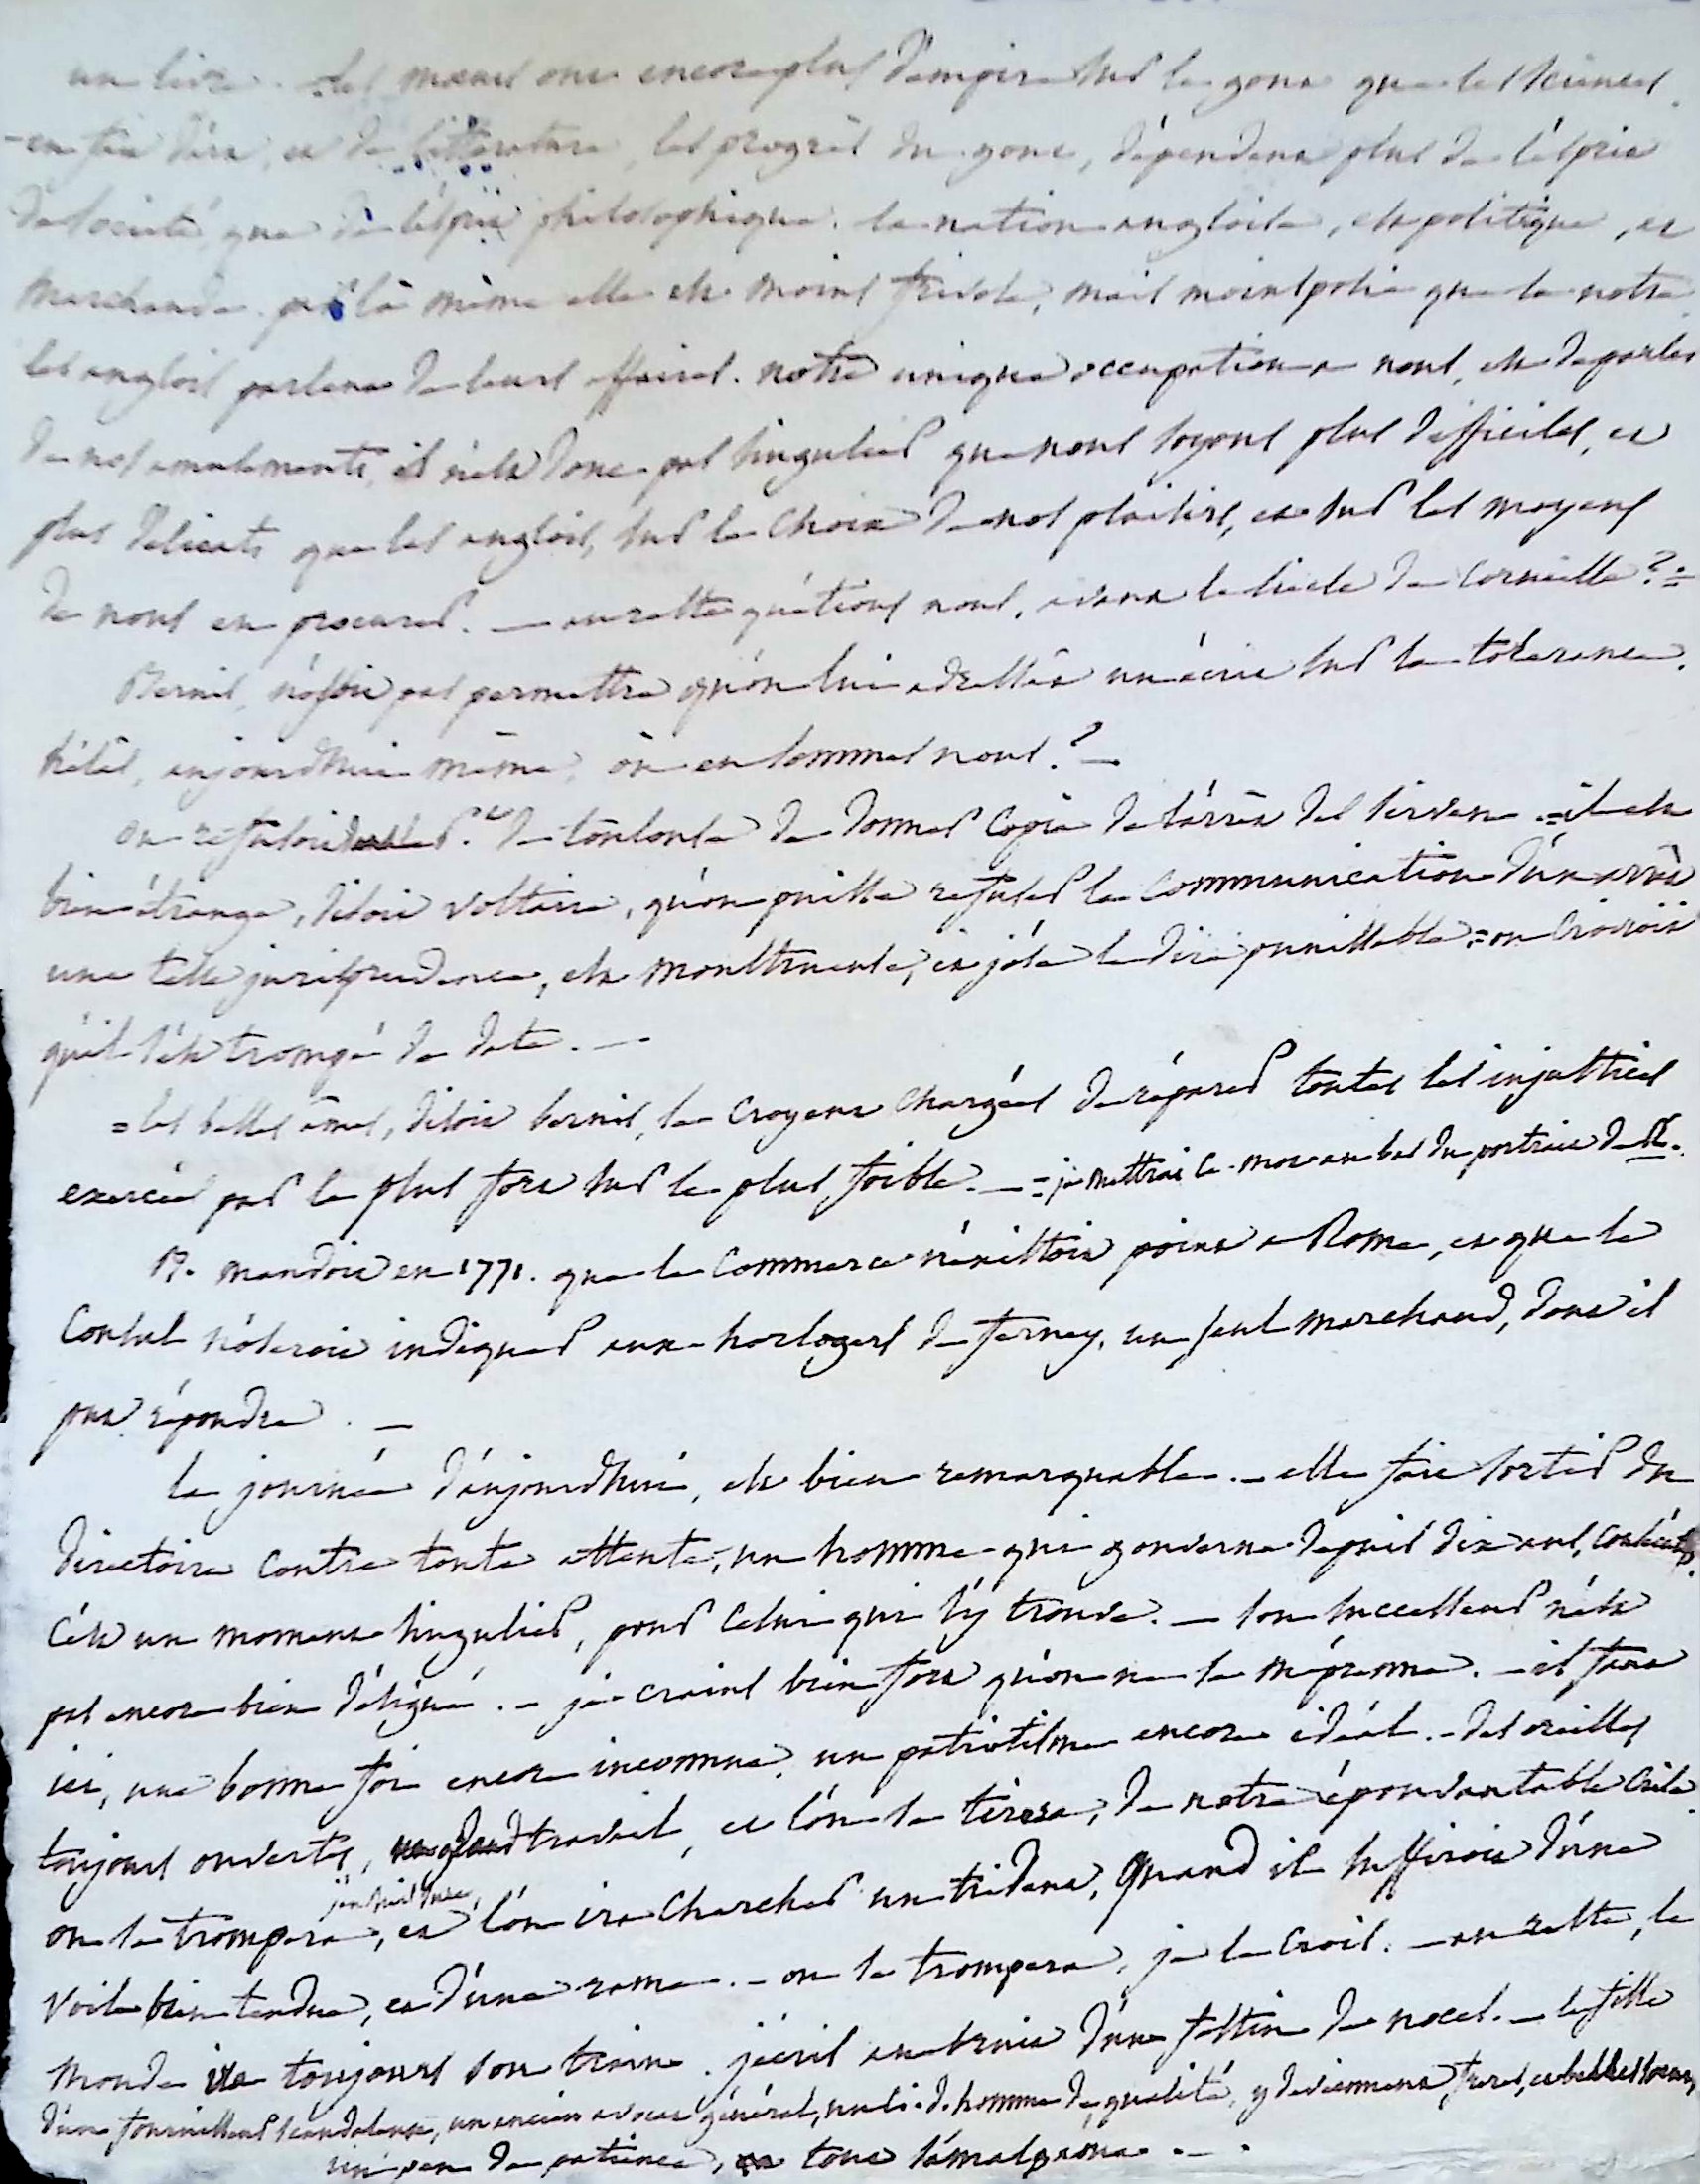 un livre. = les mœurs ont encore plus d'empire sur le gout que les sciences
en fait d'art, et de littérature, les progrès du gout, dépendent plus de l'esprit
de société, que de l'esprit philosophique. la nation angloise, est politique, et
marchande. par là même elle est moins frivole, mais moins polie que la notre.
les anglois parlent de leurs affaires. notre unique occupation a nous, est de parler
de nos amusements, il n'est donc pas singulier que nous soyons plus difficiles, et
plus délicats que les anglois, sur le choix de nos plaisirs, et sur les moyens
de nous en procurer. — au reste qu'étions nous, avant le siecle de Corneille ? =
Bernis, n'osoit pas permettre qu'on lui adressât un écrit sur la tolérance.
hélas, aujourdhui même, où en sommes nous ? —
on refusoit de Toulouse de donner copie de l'arrêt des Sirven. = il est
bien étrange, disoit voltaire, qu'on puisse refuser la communication d'un arrêt
une telle jurisprudence, est monstrueuse, et j'ose le dire punissable = on croiroit
qu'il s'est trompé de date. —
= les belles ames, disoit bernis, se croyent chargées de réparer toutes les injustices
exercées par le plus fort sur le plus foible. — = je mettrai ce mot au bas du portrait de
B. mandoit en 1771. que le commerce n'existoit point a Rome, et que le
Consul n'oseroit indiquer aux horlogers de ferney, un seul marchand, dont il
put répondre. —
la journée d'aujourdhui, est bien remarquable. — elle fait sortir du
directoire contre toute attente, un homme qui gouverne depuis dix ans,
C'est un moment singulier, pour celui qui s'y trouve. — son successeur n'est
pas encore bien désigné. — je crains bien fort qu'on ne se méprenne. — il faut
ici, une bonne foi encore inconnue, un patriotisme encore idéal. — des oreilles
toujours ouvertes, un grand travail, et l'on se tirera, de notre épouvantable crise.
on se trompera, j'en suis sure, et l'on ira chercher un trident, quand il suffiroit d'une
voile bien tendue, et d'une rame. — on se trompera, je le crois. — au reste, le
monde va toujours son train. j'écris au bruit d'un festin de noces. — la fille
d'un fournisseur scandaleux, un ancien avocat général, un c.i.d. homme de qualité, y deviennent freres, et belles sœurs
un peu de patience, et tout s'amalgame. —